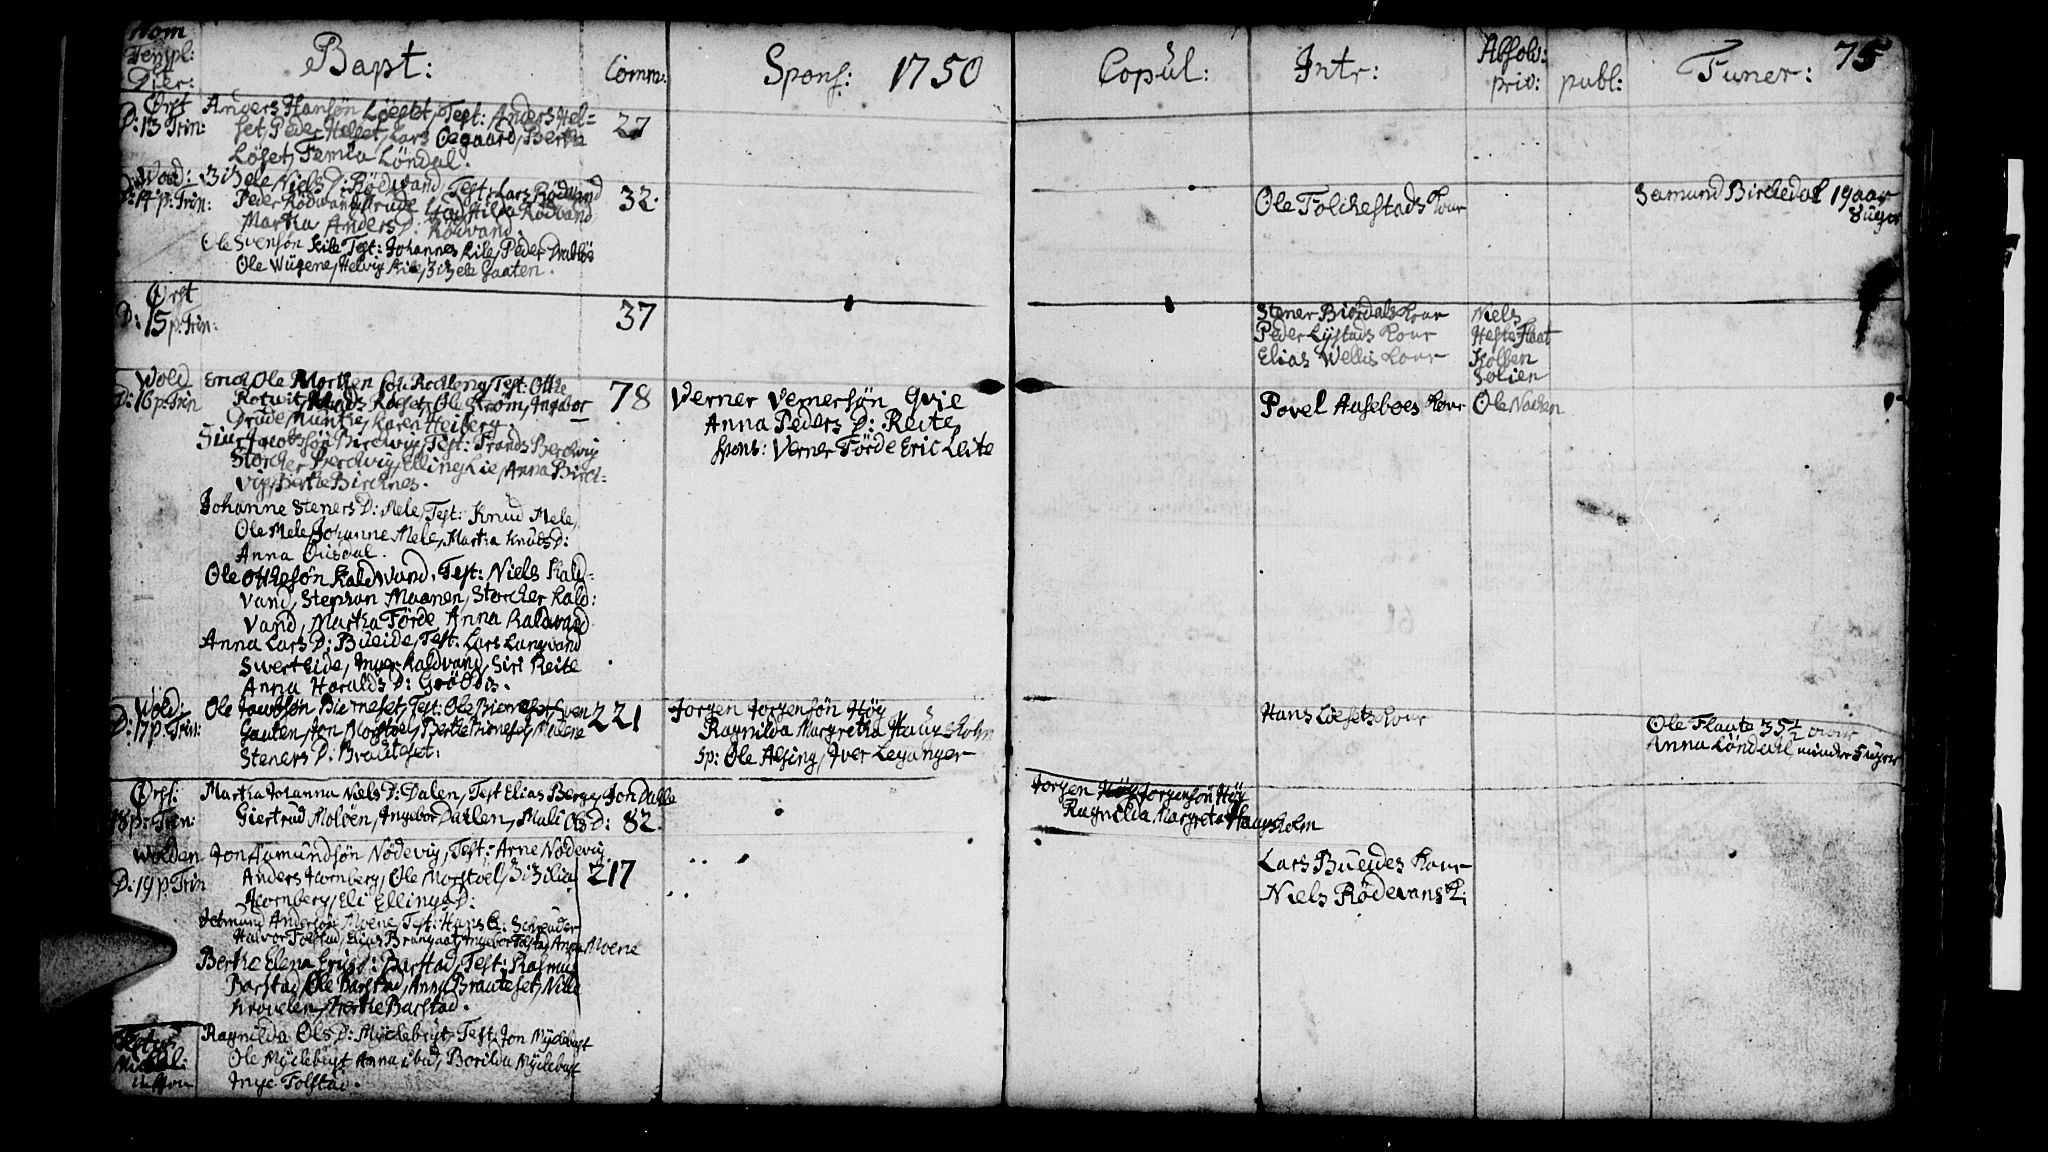 Nom
Templ:
Dier:
Bapt:
Comm:
Spons: 1750
Copul:
Intr:
Absol:
priv:
publ:
Funer: 75
Ørst
D: 13 Trin:
Anders Hansøn Løeset, Test: Anders Hel-
set, Peder Helset, Lars Oegaard, Berthe
Løset, Løndal.
27
Wold:
D: 14 p: Trin:
Zizele Niels D: Rødvand, Test: Lars Rødvand
Peder Rødvand, Rødvand
Martha Anders D: Rødvand.
Ole Svensøn Kile Test: Johannes Kile, Peder
Ole Helvig Kile, Zizele Gaaten.
32.
Ole Folchestads Kone
Semund Birchedal 19 aar
8 uger
Ørst
D: 15 p: Trin:
37
Stener Kone
Peder Lystads Kone
Elias Wellis Kone
Niels
Hefte Flaat
Solien
Wold
D: 16 p: Trin
Erich Ole Test: Otthe
Ole Strøm, Ingebor
Drude Munthe, Karen Heiberg.
Test: Frands Berchvig
Storcher Berchvig, Elling Lie, Anna Birch-
vig, Berthe Birchnes.
Johanne Steners D: Mele, Test: Knud Mele,
Ole Mele, Johanne Mele, Martha Knuds D:
Anna
Ole Otthesøn Kaldvand, Test: Niels Kald-
vand, Stephan Maanen, Storcher Kald:
vand, Martha Førde Anna Kaldvand
Anna Lars D: Bueide, Test: Lars Langvand
Swert Eide, Inger Kaldvand, Siri Reite
Anna Haralds D:
78
Verner Vernersøn Qvie
Anna Peders D: Reite
spons: Verner Førde Eric Leite
Povel Aaseboes Kone
Ole
Wold:
D: 17 p: Trin:
Ole Jacobsøn Bierneset, Test: Ole Bierneset, Sven
Gauten, Jon Morstøel, Berthe Bierneset, Malene
Steners D: Brauteset:
221
Jørgen Jørgensøn Høy
Ragnilda Margretha Haugsholm
Sp: Ole Alsing, Iver Leganger
Hans Løesets Kone
Ole Flaute 35½ aar
Anna Løndahl, mindre 5 uger
Ørst:
18 p: Trin:
Martha Johanna Niels D: Dalen, Test Elias Berge, Joh Dahle
Giertrud Moløen, Ingebor Dahlen, Mali Ols D: 82.
Jørgen Høy Jørgensøn Høy
Ragnilda Margreta Haugsholm
Wolden
D: 19 p: Trin
Jon Aamundsøn Nødevig, Test: Arne Nødevig
Anders Aarnberg, Ole Morstøel, Zizilia
Aarnberg, Eli Ellings D:
Andersøn Moene, Test: Hans Schrøder
Halvor Folstad, Elias Brungaat, Ingebor Folstad, Anna Moene
Berthe Elena D: Barstad, Test: Rasmus
Barstad, Ole Barstad, Anna Brauteset,
Krøvelen, Berthe Barstad.
217
Lars Bueides Kone
Niels Rødevans K:
Michael:
Ragnilda Ols D: Myclebust Test: Jon Myclebust
Ole Myclebust Anna ibid, Borilda Myclebust
Inge Folstad.